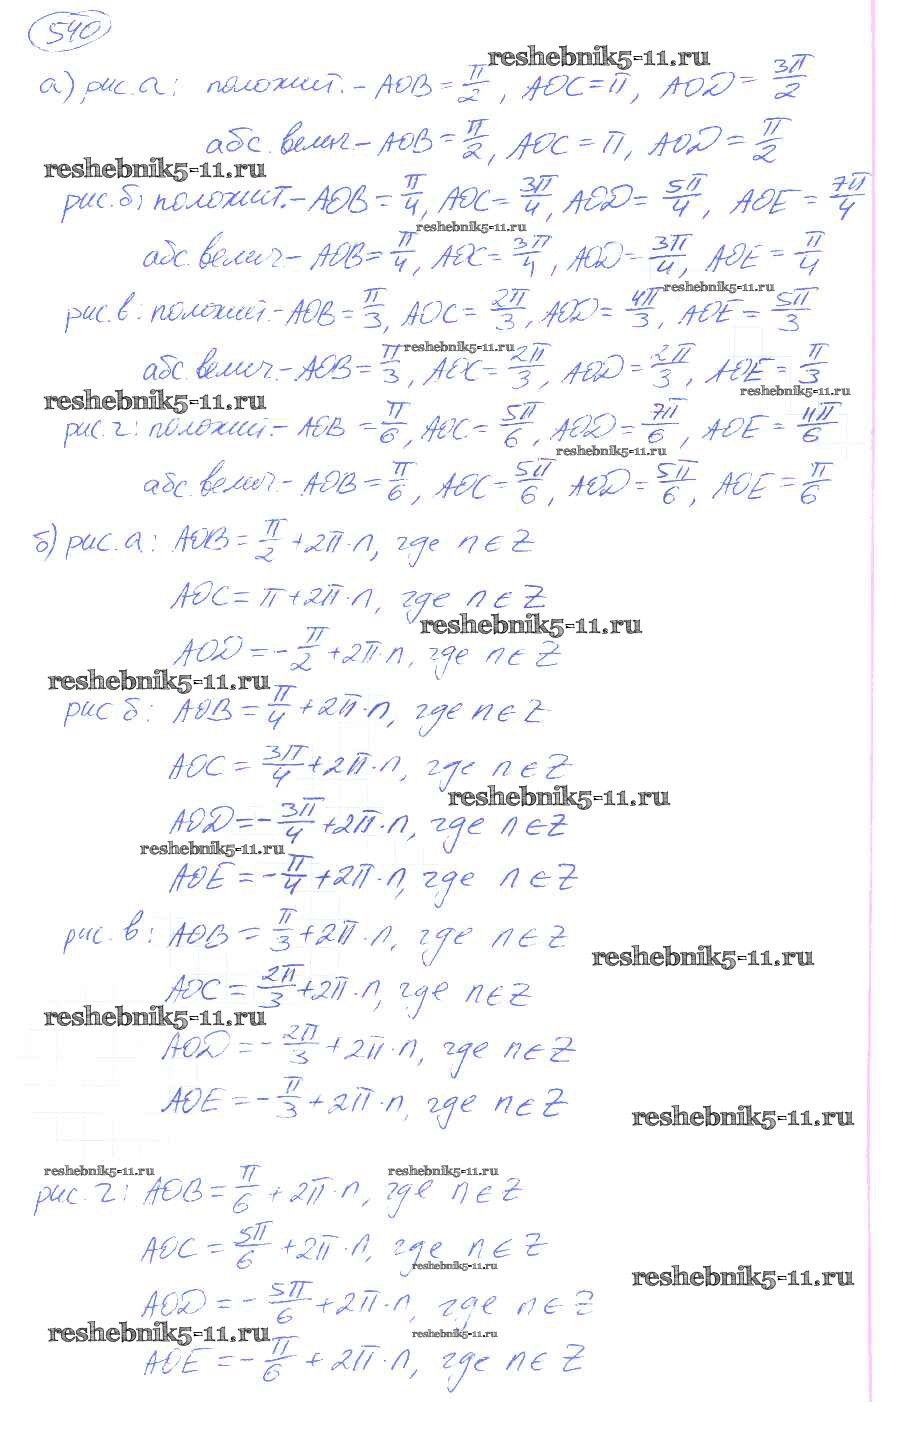 540
reshebnik5-11.ru
а) рис. а: положит. - AOB = π/2, AOC = π, AOD = 3π/2
абс. велич. - AOB = π/2, AOC = π, AOD = π/2
reshebnik5-11.ru
рис. б: положит. - AOB = π/4, AOC = 3π/4, AOD = 5π/4, AOE = 7π/4
reshebnik5-11.ru
абс. велич - AOB = π/4, AOC = 3π/4, AOD = 3π/4, AOE = π/4
reshebnik5-11.ru
рис. в: положит. - AOB = π/3, AOC = 2π/3, AOD = 4π/3, AOE = 5π/3
reshebnik5-11.ru
абс. велич. - AOB = π/3, AOC = 2π/3, AOD = 2π/3, AOE = π/3
reshebnik5-11.ru
reshebnik5-11.ru
рис. г: положит. - AOB = π/6, AOC = 5π/6, AOD = 7π/6, AOE = 11π/6
reshebnik5-11.ru
абс. велич. - AOB = π/6, AOC = 5π/6, AOD = 5π/6, AOE = π/6
б) рис. а: AOB = π/2 + 2π·n, где n ∈ Z
AOC = π + 2π·n, где n ∈ Z
reshebnik5-11.ru
AOD = -π/2 + 2π·n, где n ∈ Z
reshebnik5-11.ru
рис б: AOB = π/4 + 2π·n, где n ∈ Z
AOC = 3π/4 + 2π·n, где n ∈ Z
reshebnik5-11.ru
AOD = -3π/4 + 2π·n, где n ∈ Z
reshebnik5-11.ru
AOE = -π/4 + 2π·n, где n ∈ Z
рис. в: AOB = π/3 + 2π·n, где n ∈ Z
reshebnik5-11.ru
AOC = 2π/3 + 2π·n, где n ∈ Z
reshebnik5-11.ru
AOD = -2π/3 + 2π·n, где n ∈ Z
AOE = -π/3 + 2π·n, где n ∈ Z
reshebnik5-11.ru
reshebnik5-11.ru
reshebnik5-11.ru
рис. г: AOB = π/6 + 2π·n, где n ∈ Z
AOC = 5π/6 + 2π·n, где n ∈ Z
reshebnik5-11.ru
reshebnik5-11.ru
AOD = -5π/6 + 2π·n, где n ∈ Z
reshebnik5-11.ru
reshebnik5-11.ru
AOE = -π/6 + 2π·n, где n ∈ Z